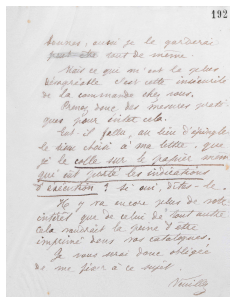 192
bonnes, aussi je le garderai
peut être tout de même.
Mais ce qui m'est le plus
désagréable c'est cette insécurité
de la commande chez vous.
Prenez donc des mesures prati
ques pour éviter cela.
Est-il fallu, au lieu d'épingler
le bleu choisi à ma lettre, que
je le colle sur le papier même
qui eut porté les indications
d'exécution ? si oui, dites-le.
Il y va encore plus de votre
intérêt que de celui de tout autre
cela vaudrait la peine d'être
imprimé dans vos catalogues.
Je vous serai donc obligée
de me fixer à ce sujet.